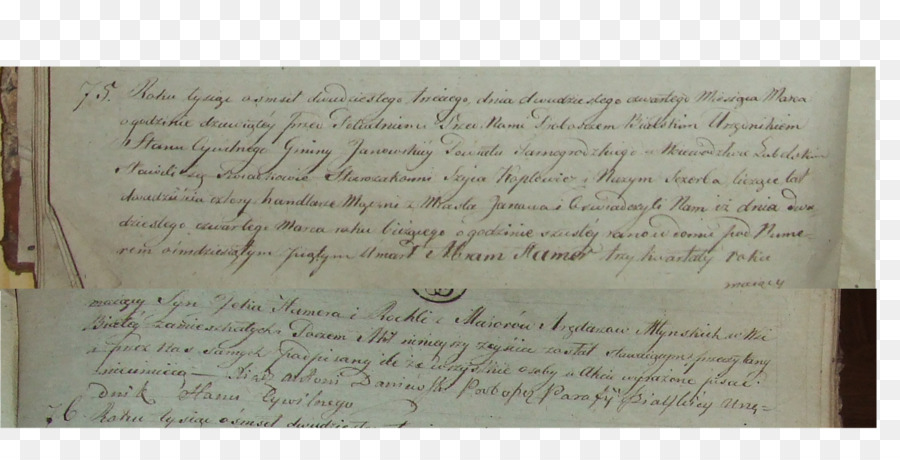 75. Roku tysiąc osmset dwudziestego trzeciego, dnia dwudziestego czwartego Miesiąca Marca
o godzinie dziewiątey przed Południem Przed Nami Proboszczem Bialskim Urzędnikiem
Stanu Cywilnego Gminy Janowskiey Powiatu Tarnogrodzkiego w Wojewodztwie Lubelskim
Stawili się Starozakonni Szyja Koplowicz i liczące lat
dwadzieścia cztery handlarze Mączni z Miasta Janowa i Oświadczyli Nam iż dnia dwu-
dziestego czwartego Marca roku bieżącego o godzinie szóstey rano w domu pod Nume-
rem osmdziesiątym piątym Umarł Abram Hamer trzy kwartały roku
maiący
maiący Syn Hamera i Rochli z Maiorów Arędarzow Młynskich w Wsi
Białey zamieszkałych Poczem Akt ninieyszy zeyścia został stawaiącym przeczytany
i przez Nas samych podpisany ile że wszystkie osoby w Akcie wyrażone pisać
nieumieią – Antoni Proboszcz Parafii Bialskiey Urzę-
dnik Stanu Cywilnego
76 Roku tysiąc ośmset